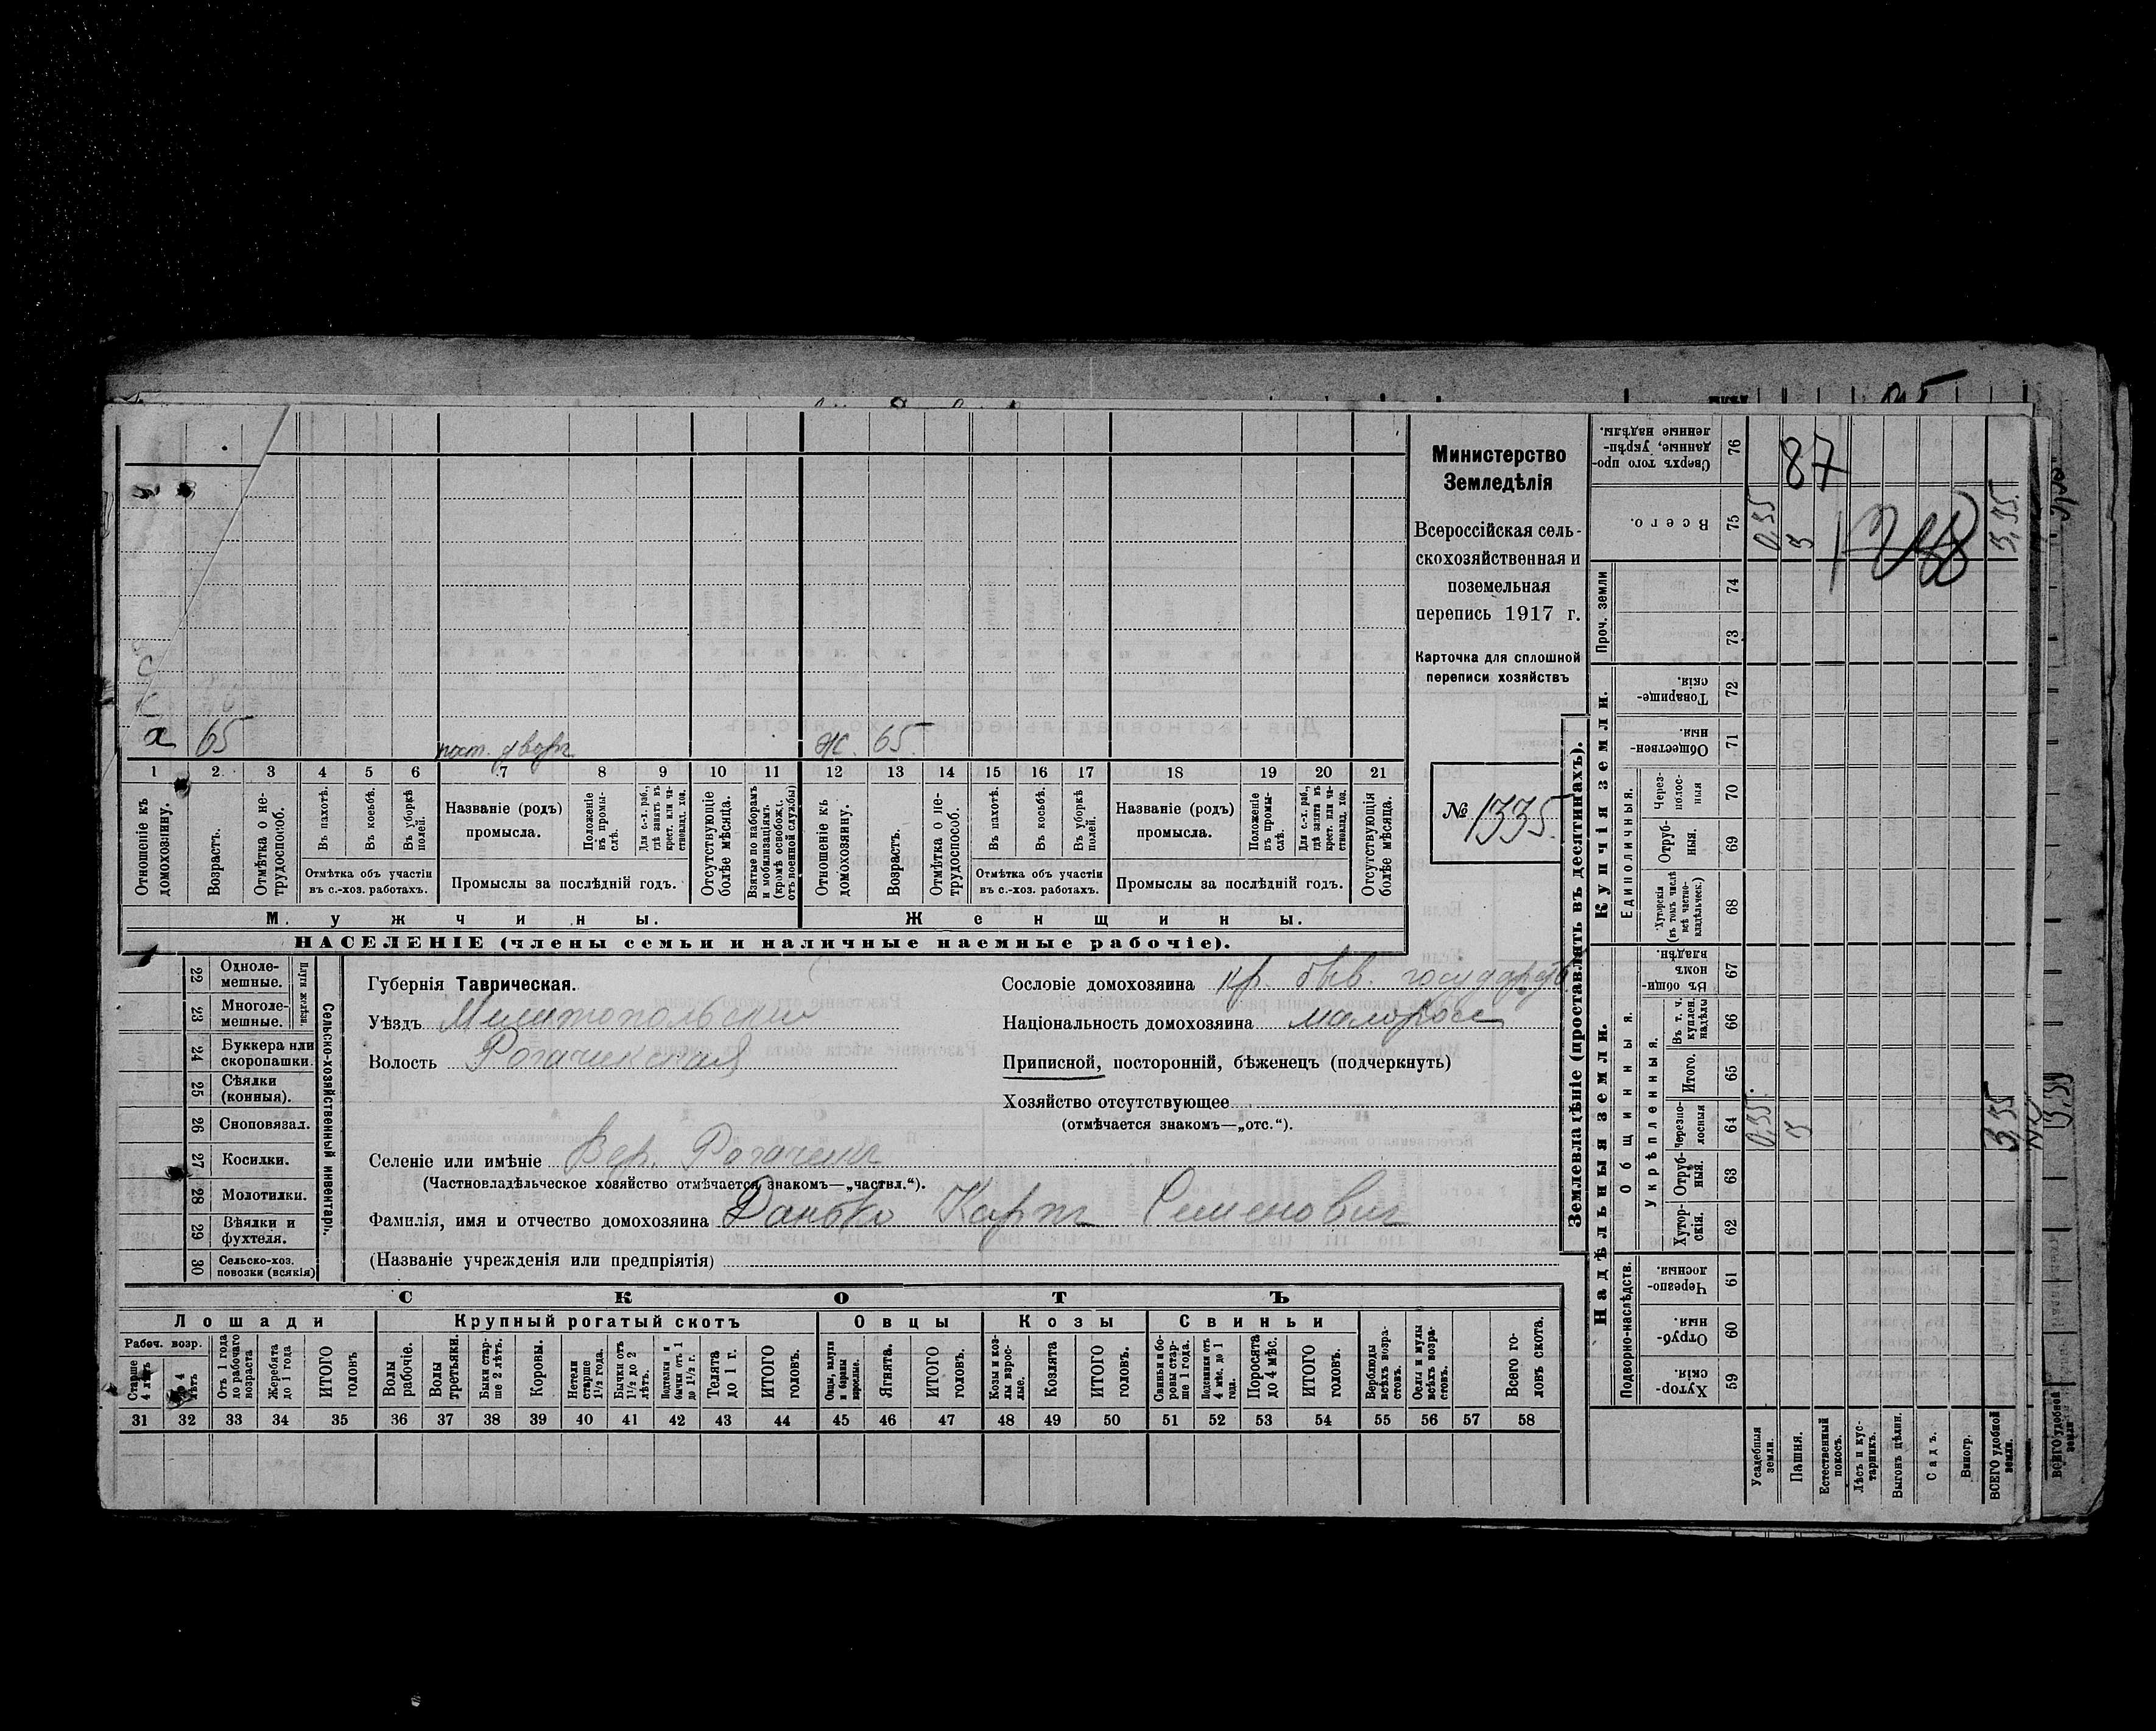 Министерство
Земледѣлія
Всероссійская сель-
скохозяйственная и
поземельная
перепись 1917 г.
Карточка для сплошной
переписи хозяйствъ
№ 1335.
65
пост. дворъ
ж. 65.
1 2 3 4 5 6 7 8 9 10 11 12 13 14 15 16 17 18 19 20 21
Отношеніе къ домохозяину.
Возрастъ.
Отмѣтка о не-трудоспособ.
Въ пахотѣ.
Въ косьбѣ.
Въ уборкѣ полей.
Отмѣтка объ участіи
въ с.-хоз. работахъ.
Названіе (родъ)
промысла.
Положеніе въ промы-слѣ.
Для с.-х. раб., гдѣ занятъ въ крест. или ча-стновлад. хоз.
Промыслы за послѣдній годъ.
Отсутствующіе болѣе мѣсяца.
Взятые по наборамъ и мобилизаціямъ (кромѣ освобожд. отъ военной службы)
Отношеніе къ домохозяину.
Возрастъ.
Отмѣтка о не-трудоспособ.
Въ пахотѣ.
Въ косьбѣ.
Въ уборкѣ полей.
Отмѣтка объ участіи
въ с.-хоз. работахъ.
Названіе (родъ)
промысла.
Положеніе въ промы-слѣ.
Для с.-х. раб., гдѣ занята въ крест. или ча-стновлад. хоз.
Промыслы за послѣдній годъ.
Отсутствующія болѣе мѣсяца.
Мужчины.
Женщины.
НАСЕЛЕНІЕ (члены семьи и наличные наемные рабочіе).
Сельско-хозяйственный инвентарь.
Плуги желѣзн.
22 Однолемешные.
23 Многолемешные.
24 Буккера или скоропашки.
25 Сѣялки (конныя).
26 Сноповязал.
27 Косилки.
28 Молотилки.
29 Вѣялки и фухтеля.
30 Сельско-хоз. повозки (всякія)
Губернія Таврическая.
Уѣздъ Мелитопольскій
Волость Рогачикская
Сословіе домохозяина кр. быв. государств
Національность домохозяина малоросс
Приписной, посторонній, бѣженецъ (подчеркнуть)
Хозяйство отсутствующее
(отмѣчается знакомъ—„отс.“).
Селеніе или имѣніе Вер. Рогачикъ
(Частновладѣльческое хозяйство отмѣчается знакомъ—„частвл.“).
Фамилія, имя и отчество домохозяина Данько Карпъ Семеновичъ
(Названіе учрежденія или предпріятія)
СКОТЪ
Лошади
Крупный рогатый скотъ
Овцы
Козы
Свиньи
Рабоч. возр.
Старше 4 лѣтъ
До 4 лѣтъ
Отъ 1 года до рабочаго возраста
Жеребята до 1 года
ИТОГО головъ
Волы рабочіе.
Волы третьяки.
Быки стар-ше 2 лѣтъ.
Коровы.
Нетели старше 1½ года.
Бычки отъ 1½ до 2 лѣтъ.
Подтелки и бычки отъ 1 до 1½ г.
Телята до 1 г.
ИТОГО головъ.
Овцы, валухи и бараны взрослые.
Ягнята.
ИТОГО головъ.
Козы и коз-лы взрос-лые.
Козлята
ИТОГО головъ.
Свиньи и бо-ровы стар-ше 1 года.
Подсвинки отъ 4 мѣс. до 1 года.
Поросята до 4 мѣс.
ИТОГО головъ.
Верблюды всѣхъ возра-стовъ.
Ослы и мулы всѣхъ возра-стовъ.
Всего го-ловъ скота.
31 32 33 34 35 36 37 38 39 40 41 42 43 44 45 46 47 48 49 50 51 52 53 54 55 56 57 58
Землевладѣніе (проставлять въ десятинахъ).
Надѣльныя земли.
Купчія земли.
Сверхъ того про-данные, укрѣп-ленные надѣлы. 76
87
Всего. 75
0,35 3 3,35.
Проч. земли
74
73
Товарище-скія. 72
Обществен-ныя. 71
Единоличныя.
Через-полос-ныя 70
Отруб-ныя. 69
Хуторскія (въ томъ числѣ всѣ частно-владѣльческ.) 68
Общинныя.
Въ общин-номъ владѣн. 67
Укрѣпленныя.
Въ т. ч. куплен. надѣлы 66
Итого. 65
Черезпо-лосныя 64
0,35. 3 3,35
Отруб-ныя. 63
Хутор-скія. 62
Подворно-наслѣдств.
Черезпо-лосныя. 61
Отруб-ныя. 60
Хутор-скія. 59
Усадебныя земли.
Пашня.
Естественный покосъ.
Лѣсъ и кус-тарникъ.
Выгонъ цѣлин.
Садъ.
Виногр.
ВСЕГО удобной земли.
ВСЕГО удобной земли